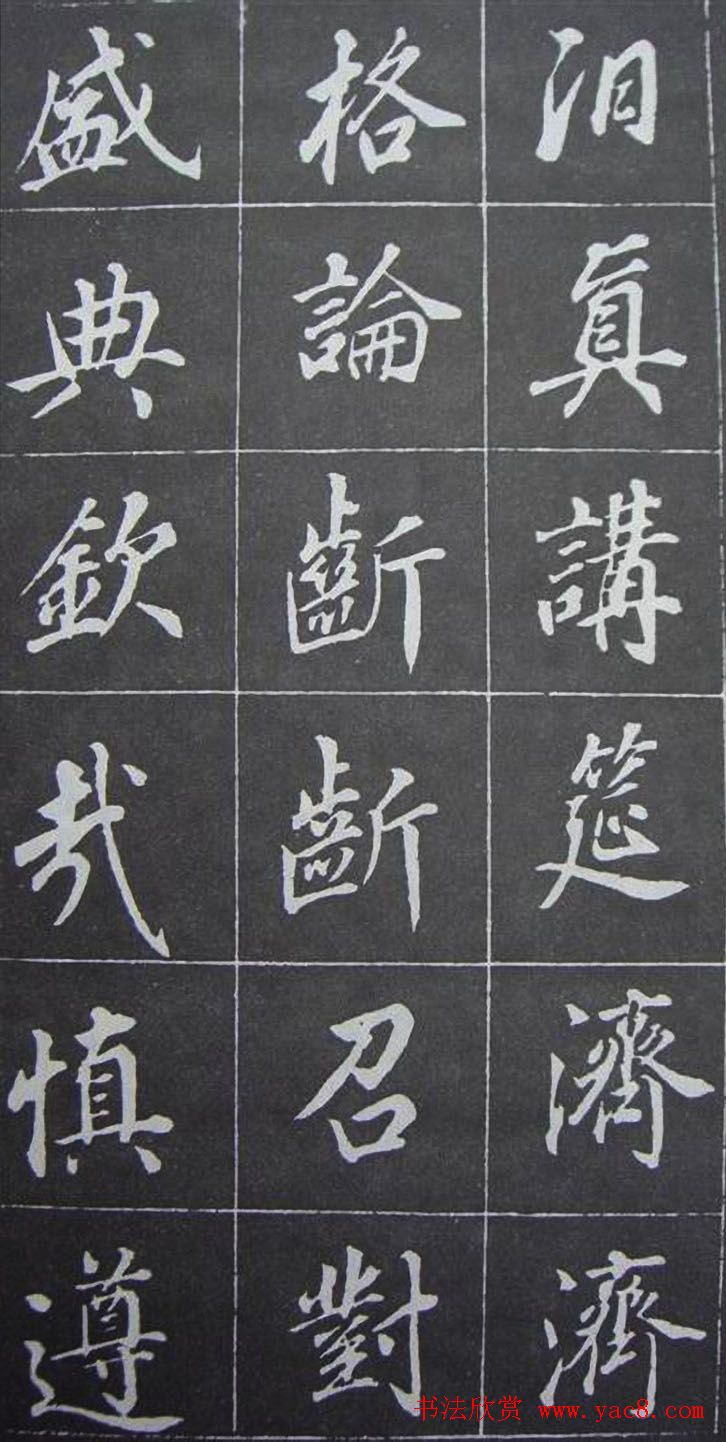 汨真講筵濟濟
格論齗齗召對
盛典欽哉慎遵
书法欣赏 www.yac8.com